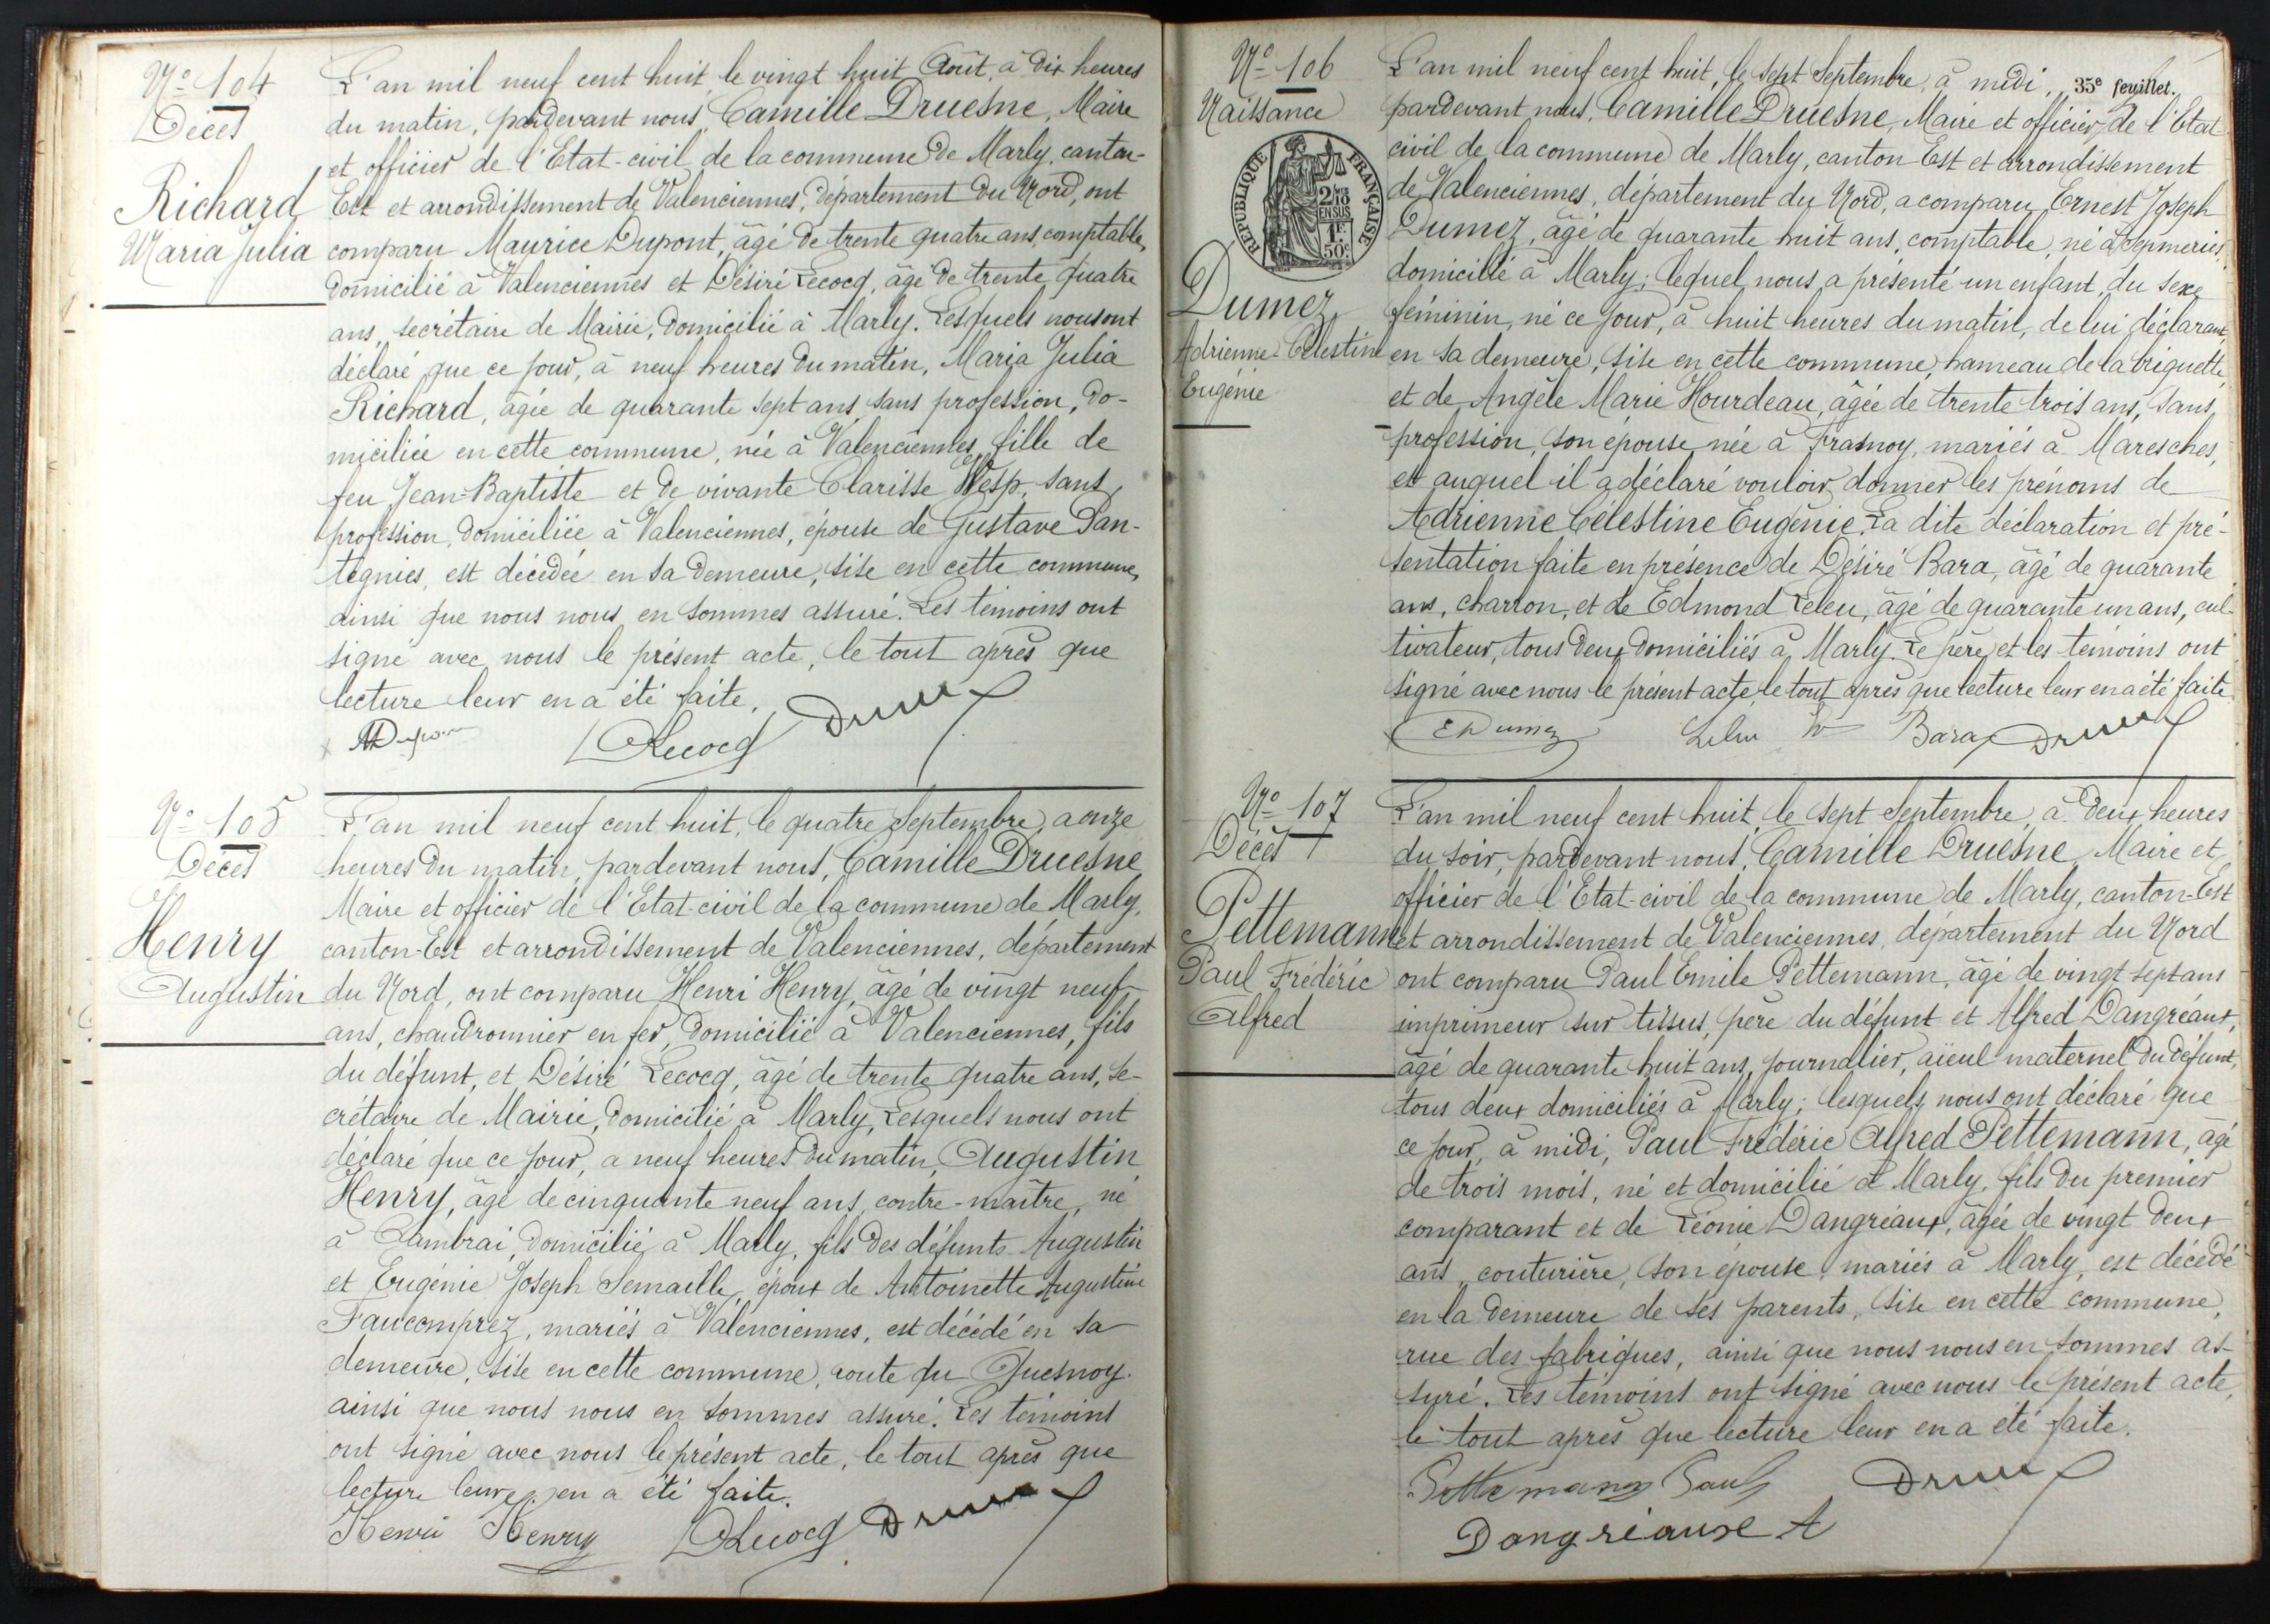 N° 104
Décès
Richard
Maria Julia
L'an mil neuf cent huit, le vingt huit Août, à dix heures
du matin, pardevant nous, Camille Druesne, Maire
et officier de l'Etat-civil de la commune de Marly, canton-
Est et arrondissement de Valenciennes, département du Nord, ont
comparu Maurice Dupont, âgé de trente quatre ans, comptable,
domicilié à Valenciennes et Désiré Lecocq, âgé de trente quatre
ans, secrétaire de Mairie, domicilié à Marly. Lesquels nous ont
déclaré que ce jour, à neuf heures du matin, Maria Julia
Richard, âgée de quarante sept ans, sans profession, do-
miciliée en cette commune, née à Valenciennes, fille de
feu Jean-Baptiste et de vivante Clarisse Wesp, sans
profession, domiciliée à Valenciennes, épouse de Gustave Pan-
tegnies, est décédée en sa demeure, sise en cette commune,
ainsi que nous nous en sommes assuré. Les témoins ont
signé avec nous le présent acte, le tout après que
lecture leur en a été faite.
MDupont DLecocq Druesne
N° 105
Décès
Henry
Augustin
L'an mil neuf cent huit, le quatre Septembre, a onze
heures du matin, pardevant nous, Camille Druesne
Maire et officier de l'Etat-civil de la commune de Marly,
canton-Est et arrondissement de Valenciennes, département
du Nord, ont comparu Henri Henry, âgé de vingt neuf
ans, chaudronnier en fer, domicilié à Valenciennes, fils
du défunt, et Désiré Lecocq, âgé de trente quatre ans, se-
crétaire de Mairie, domicilié à Marly, Lesquels nous ont
déclaré que ce jour, a neuf heures du matin, Augustin
Henry, âgé de cinquante neuf ans, contre-maître, né
à Cambrai, domicilié à Marly, fils des défunts Augustin
et Eugénie Joseph Semaille, époux de Antoinette Augustine
Faucomprez, mariés à Valenciennes, est décédé en sa
demeure, sise en cette commune, route du Quesnoy.
ainsi que nous nous en sommes assuré. Les témoins
ont signé avec nous le présent acte, le tout après que
lecture leur en a été faite.
Henri Henry DLecocq Druesne
35e feuillet.
N° 106
Naissance
RÉPUBLIQUE FRANÇAISE
2/10
EN SUS
1F
50c
Dumez
Adrienne Célestine
Eugénie
L'an mil neuf cent huit, le sept Septembre, à midi,
pardevant nous, Camille Druesne, Maire et officier de l'Etat
civil de la commune de Marly, canton-Est et arrondissement
de Valenciennes, département du Nord, a comparu Ernest Joseph
Dumez, âgé de quarante huit ans, comptable, né à Sepmeries,
domicilié à Marly; lequel nous a présenté un enfant, du sexe
féminin, né ce jour, à huit heures du matin, de lui déclarant,
en sa demeure, sise en cette commune, hameau de la briquette,
et de Angèle Marie Hourdeau, âgée de trente trois ans, sans
profession, son épouse née à Frasnoy, mariés à Maresches,
et auquel il a déclaré vouloir donner les prénoms de
Adrienne Célestine Eugénie. La dite déclaration et pré-
sentation faite en présence de Désiré Bara, âgé de quarante
ans, charron, et de Edmond Leleu, âgé de quarante un ans, cul-
tivateur, tous deux domiciliés à Marly. Le père et les témoins ont
signé avec nous le présent acte, le tout après que lecture leur en a été faite.
EDumez Leleu Bara Druesne
N° 107
Décès
Pettemann
Paul Frédéric
Alfred
L'an mil neuf cent huit, le sept Septembre, à deux heures
du soir, pardevant nous, Camille Druesne, Maire et
officier de l'Etat-civil de la commune de Marly, canton-Est
et arrondissement de Valenciennes, département du Nord
ont comparu Paul Emile Pettemann, âgé de vingt sept ans
imprimeur sur tissus, père du défunt et Alfred Dangréaux,
âgé de quarante huit ans, journalier, aïeul maternel du défunt,
tous deux domiciliés à Marly; lesquels nous ont déclaré que
ce jour, à midi, Paul Frédéric Alfred Pettemann, âgé
de trois mois, né et domicilié à Marly, fils du premier
comparant et de Léonie Dangréaux, âgée de vingt deux
ans, couturière, son épouse, mariés à Marly, est décédé
en la demeure de ses parents, sise en cette commune,
rue des fabriques, ainsi que nous nous en sommes as-
suré. Les témoins ont signé avec nous le présent acte,
le tout après que lecture leur en a été faite.
Pettemann Paul Druesne
Dangréaux A